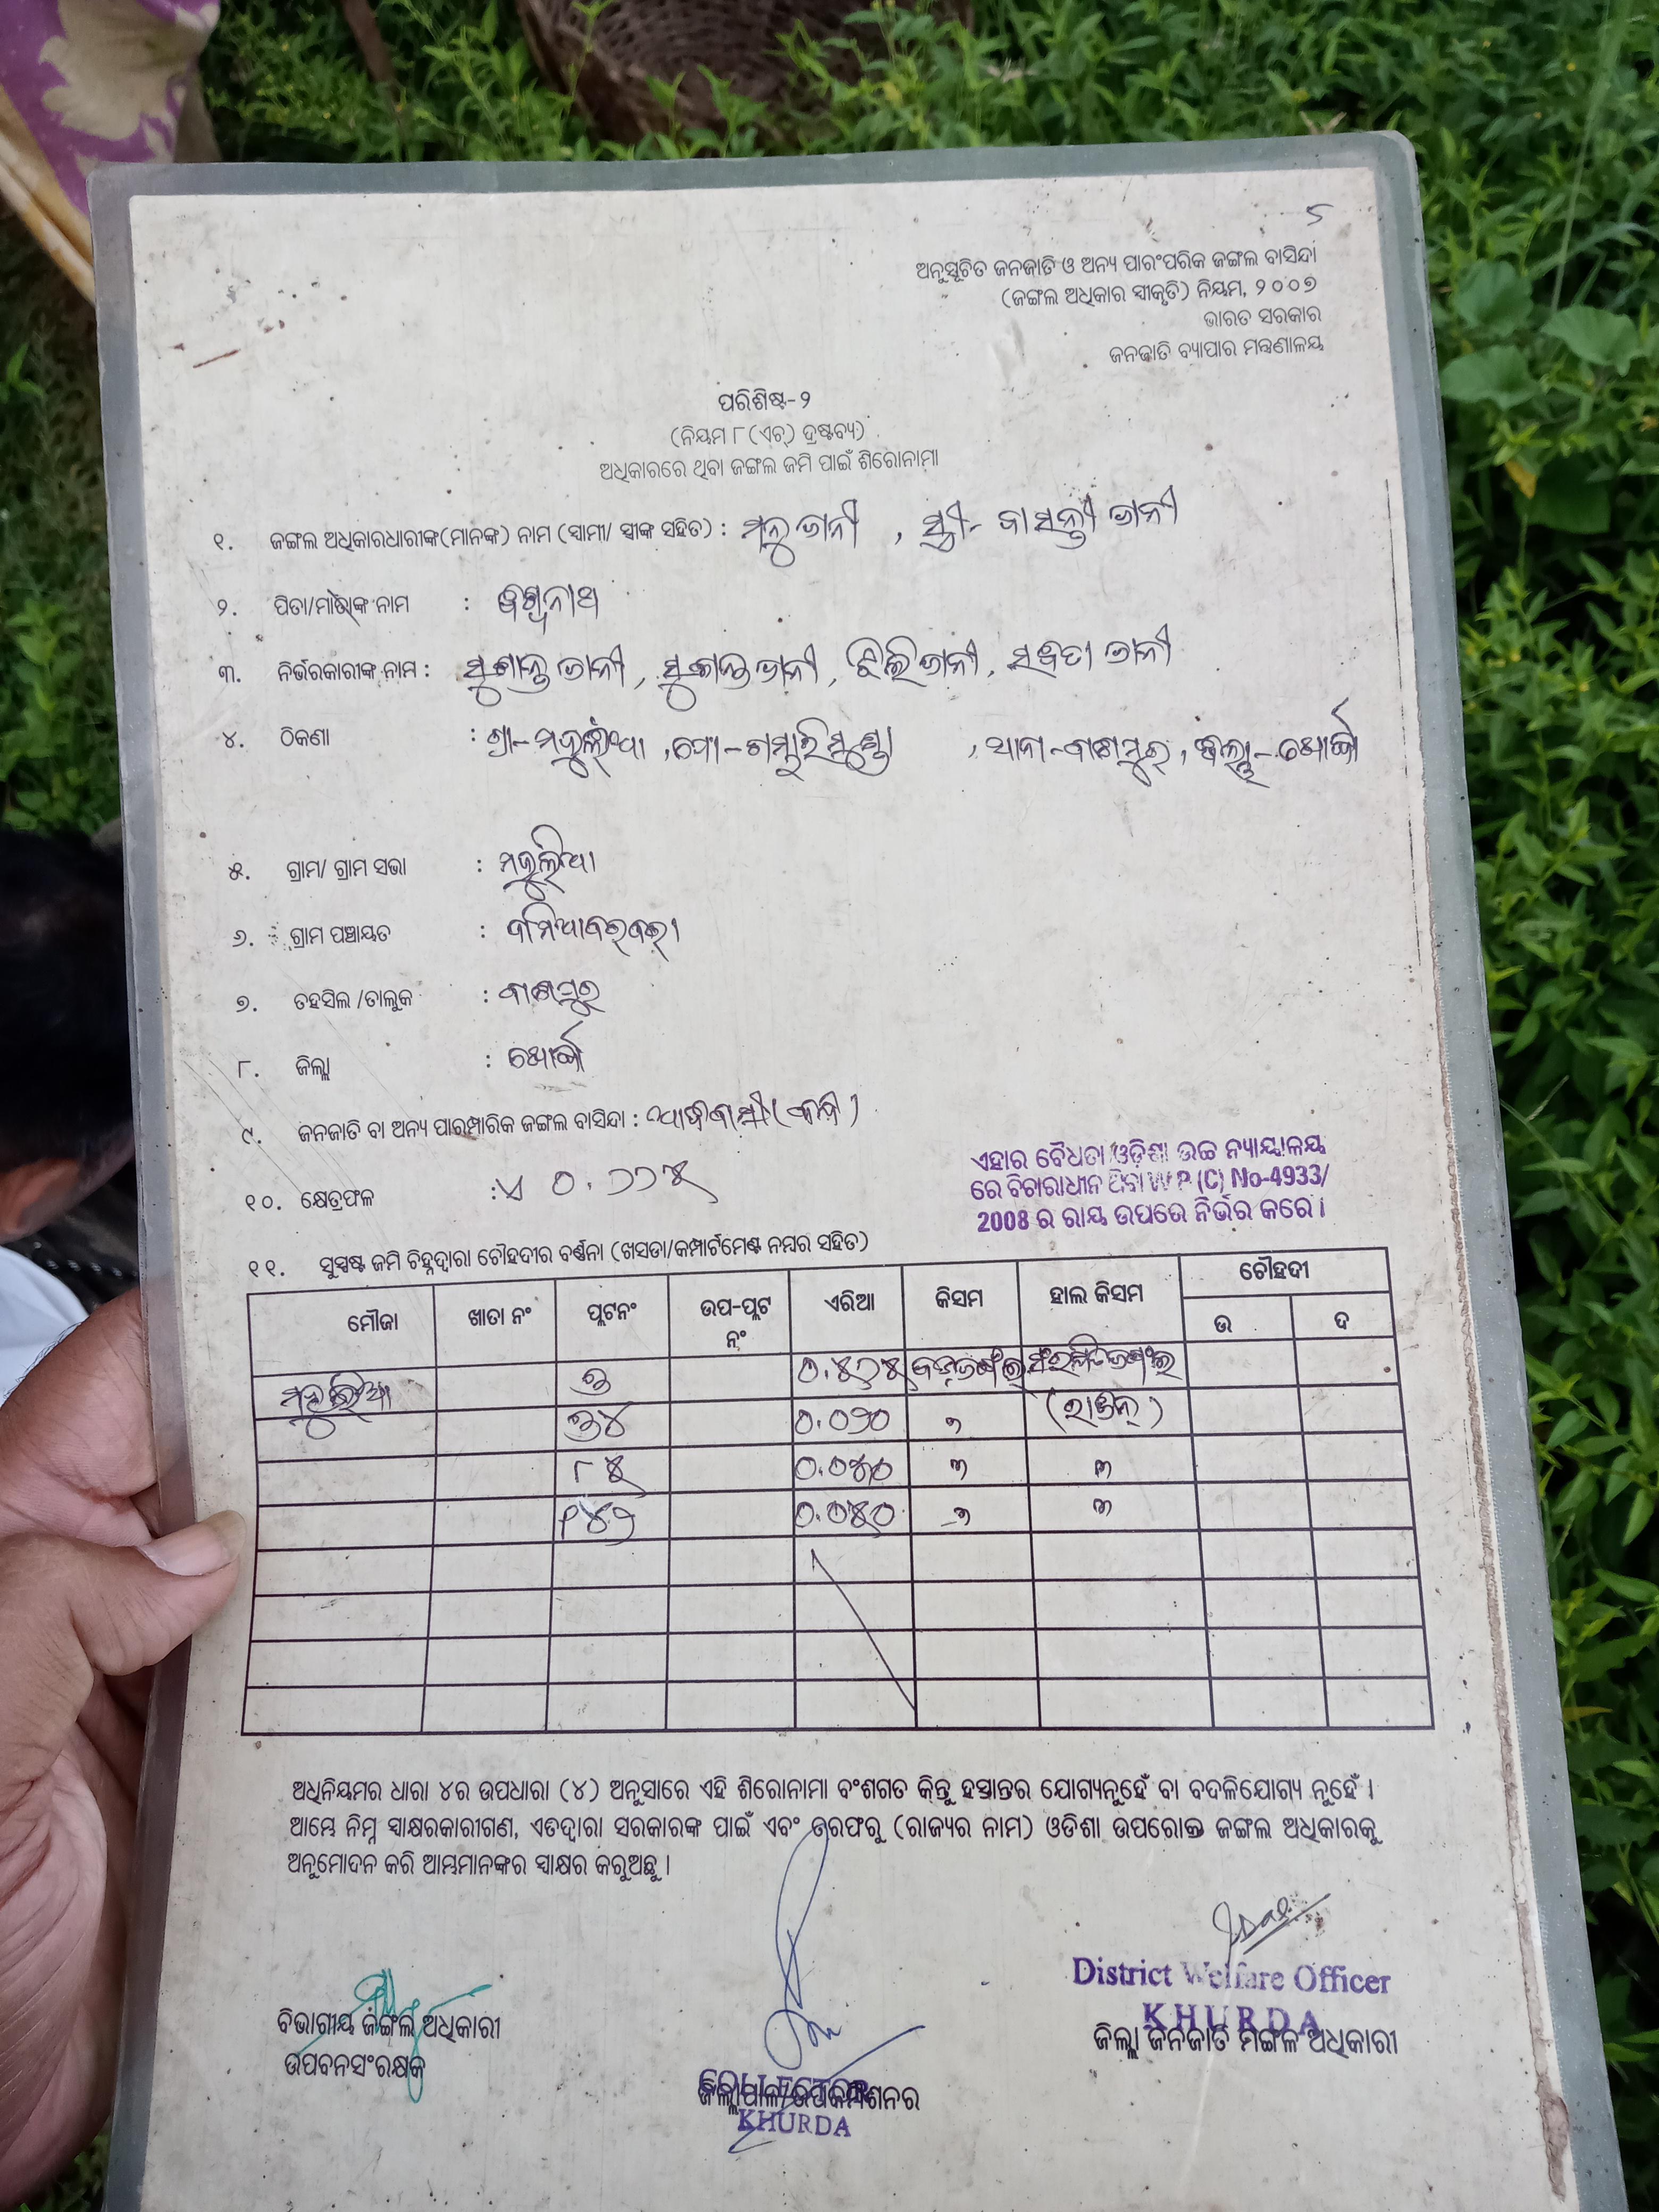 ୪
ଅନୁସୂଚିତ ଜନଜାତି ଓ ଅନ୍ୟ ପାରଂପରିକ ଜଙ୍ଗଲ ବାସିନ୍ଦା
(ଜଙ୍ଗଲ ଅଧିକାର ସ୍ୱୀକୃତି) ନିୟମ, ୨୦୦୭
ଭାରତ ସରକାର
ଜନଜାତି ବ୍ୟାପାର ମନ୍ତ୍ରଣାଳୟ
ପରିଶିଷ୍ଟ-୨
(ନିୟମ ୮(ଏଚ୍) ଦ୍ରଷ୍ଟବ୍ୟ)
ଅଧିକାରରେ ଥିବା ଜଙ୍ଗଲ ଜମି ପାଇଁ ଶିରୋନାମା
୧. ଜଙ୍ଗଲ ଅଧିକାରଧାରୀଙ୍କ(ମାନଙ୍କ) ନାମ (ସ୍ୱାମୀ/ ସ୍ତ୍ରୀଙ୍କ ସହିତ) : ମନୁ ଜାନୀ , ସ୍ତ୍ରୀ- ବାସନ୍ତୀ ଜାନୀ
୨. ପିତା/ମାତାଙ୍କ ନାମ :
୩. ନିର୍ଭରକାରୀଙ୍କ ନାମ : ସୁଶାନ୍ତ ଜାନୀ, ସୁକାନ୍ତ ଜାନୀ, ଝିଲି ଜାନୀ, ସବିତା ଜାନୀ
୪. ଠିକଣା : ଗ୍ରା- ମହୁଲିଆ , ପୋ- ଗମ୍ଭାରିମୁଣ୍ଡା , ଥାନା- ବାଣପୁର, ଜିଲ୍ଲା- ଖୋର୍ଦ୍ଧା
୫. ଗ୍ରାମ/ ଗ୍ରାମ ସଭା : ମହୁଲିଆ
୬. ଗ୍ରାମ ପଞ୍ଚାୟତ :
୭. ତହସିଲ /ତାଲୁକ : ବାଣପୁର
୮. ଜିଲ୍ଲା : ଖୋର୍ଦ୍ଧା
୯. ଜନଜାତି ବା ଅନ୍ୟ ପାରମ୍ପାରିକ ଜଙ୍ଗଲ ବାସିନ୍ଦା : ଆଦିବାସୀ (କନ୍ଧ)
୧୦. କ୍ଷେତ୍ରଫଳ : ଏ ୦.୬୬୫
ଏହାର ବୈଧତା ଓଡ଼ିଶା ଉଚ୍ଚ ନ୍ୟାୟାଳୟ
ରେ ବିଚାରାଧୀନ ଥିବା W.P. (C) No-4933/
2008 ର ରାୟ ଉପରେ ନିର୍ଭର କରେ ।
୧୧. ସୁସ୍ପଷ୍ଟ ଜମି ଚିହ୍ନଦ୍ୱାରା ଚୌହଦୀର ବର୍ଣ୍ଣନା (ଖସଡା/କମ୍ପାର୍ଟମେଣ୍ଟ ନମ୍ବର ସହିତ)
ମୌଜା ଖାତା ନଂ ପ୍ଲଟନଂ ଉପ-ପ୍ଲଟ ନଂ ଏରିଆ କିସମ ହାଲ କିସମ ଚୌହଦୀ
ଉ ଦ
ମହୁଲିଆ ୩ ବଡ଼ଜଙ୍ଗଲ ସଂରକ୍ଷିତ ଜଙ୍ଗଲ
୩୪ ୦.୦୨୦ ୬
୮୫
୦.୦୫୦
ଅଧିନିୟମର ଧାରା ୪ର ଉପଧାରା (୪) ଅନୁସାରେ ଏହି ଶିରୋନାମା ବଂଶଗତ କିନ୍ତୁ ହସ୍ତାନ୍ତର ଯୋଗ୍ୟନୁହେଁ ବା ବଦଳିଯୋଗ୍ୟ ନୁହେଁ ।
ଆମ୍ଭେ ନିମ୍ନ ସ୍ୱାକ୍ଷରକାରୀଗଣ, ଏତଦ୍ୱାରା ସରକାରଙ୍କ ପାଇଁ ଏବଂ ତରଫରୁ (ରାଜ୍ୟର ନାମ) ଓଡିଶା ଉପରୋକ୍ତ ଜଙ୍ଗଲ ଅଧିକାରକୁ
ଅନୁମୋଦନ କରି ଆମ୍ଭମାନଙ୍କର ସ୍ୱାକ୍ଷର କରୁଅଛୁ ।
District Welfare Officer
KHURDA
ବିଭାଗୀୟ ଜଙ୍ଗଲ ଅଧିକାରୀ
ଉପବନସଂରକ୍ଷକ
ଜିଲ୍ଲା ଜନଜାତି ମଙ୍ଗଳ ଅଧିକାରୀ
COLLECTOR
ଜିଲ୍ଲାପାଳ/ଉପକମିଶନର
KHURDA